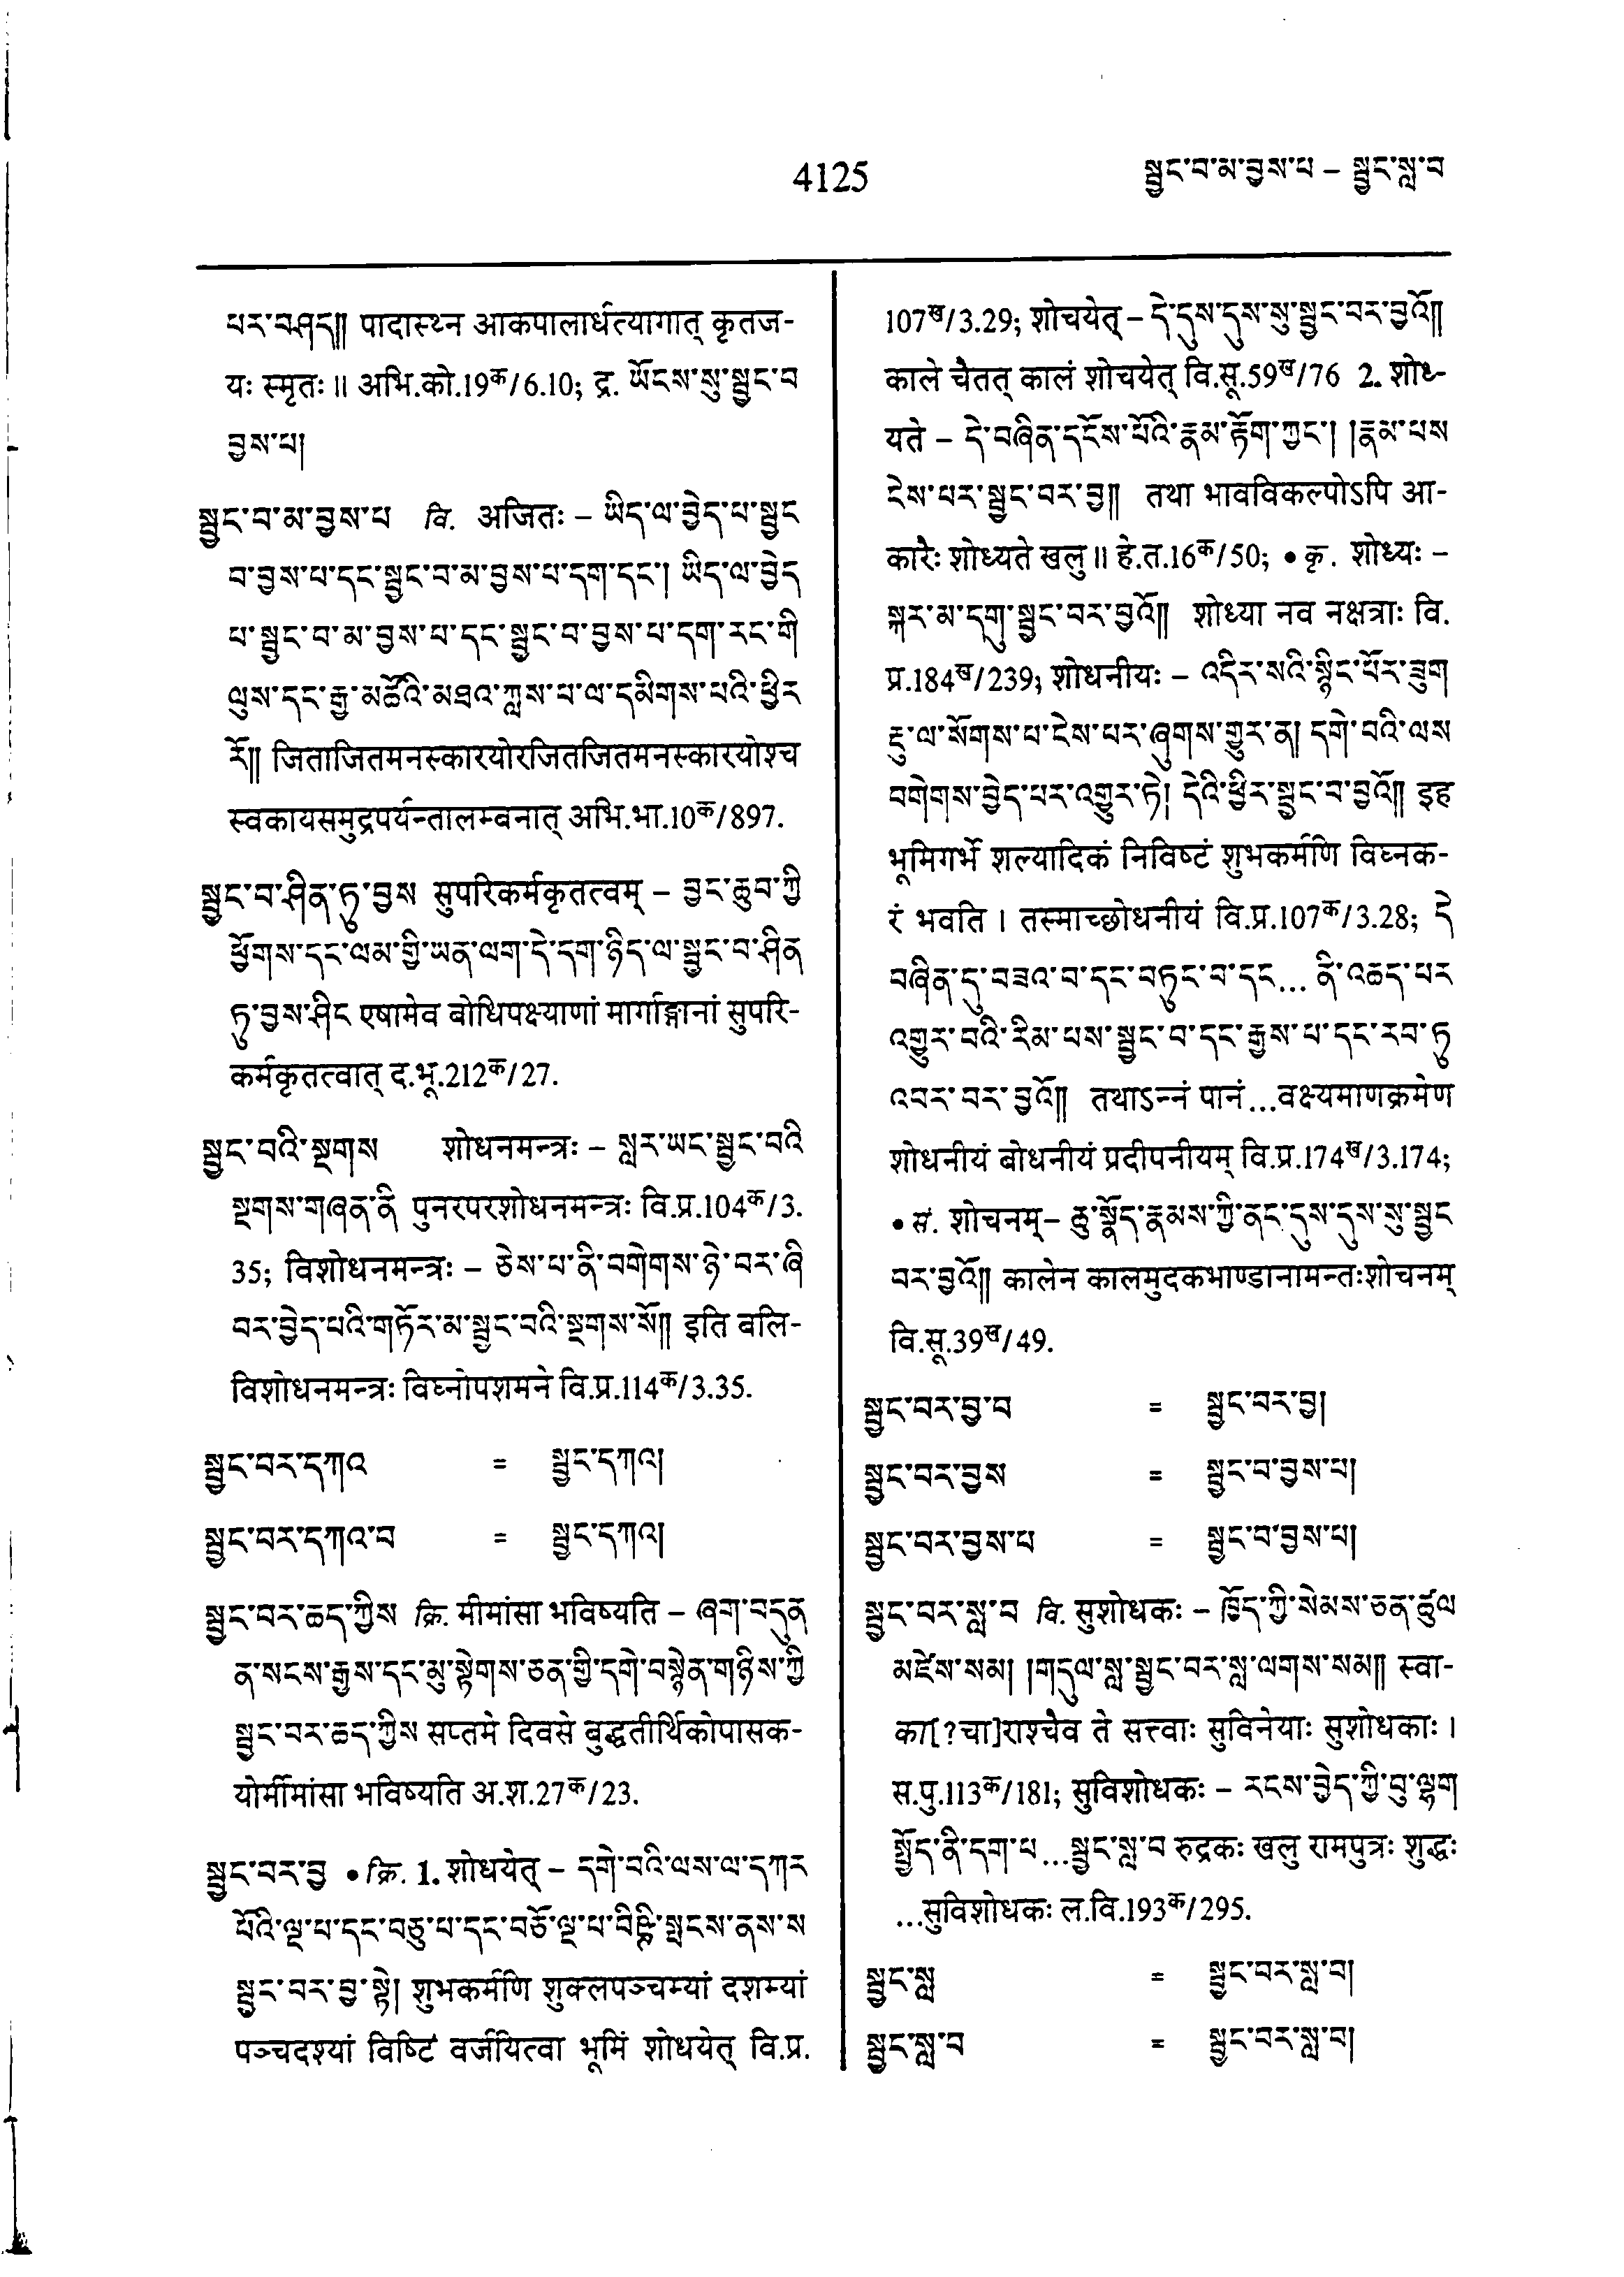 4125
སྦྱང་བ་མ་བྱས་པ – སྦྱང་སླ་བ
པར་བཤད།། पादास्थ्न आकपालार्धत्यागात् कृतज-
यः स्मृतः ॥ अभि.को.19क/6.10; द्र. ཡོངས་སུ་སྦྱང་བ
བྱས་པ།
སྦྱང་བ་མ་བྱས་པ वि. अजितः – ཡིད་ལ་བྱེད་པ་སྦྱང
བ་བྱས་པ་དང་སྦྱང་བ་མ་བྱས་པ་དག་དང་། ཡིད་ལ་བྱེད
པ་སྦྱང་བ་མ་བྱས་པ་དང་སྦྱང་བ་བྱས་པ་དག་རང་གི
ལུས་དང་རྒྱ་མཚོའི་མཐའ་ཀླས་པ་ལ་དམིགས་པའི་ཕྱིར
རོ།། जिताजितमनस्कारयोरजितजितमनस्कारयोश्च
स्वकायसमुद्रपर्यन्तालम्बनात् अभि.भा.10क/897.
སྦྱང་བ་ཤིན་ཏུ་བྱས सुपरिकर्मकृतत्वम् – བྱང་ཆུབ་ཀྱི
ཕྱོགས་དང་ལམ་གྱི་ཡན་ལག་དེ་དག་ཉིད་ལ་སྦྱང་བ་ཤིན
ཏུ་བྱས་ཤིང एषामेव बोधिपक्ष्याणां मार्गाङ्गानां सुपरि-
कर्मकृतत्वात् द.भू.212क/27.
སྦྱང་བའི་སྔགས शोधनमन्त्रः – སླར་ཡང་སྦྱང་བའི
སྔགས་གཞན་ནི पुनरपरशोधनमन्त्रः वि.प्र.104क/3.
35; विशोधनमन्त्रः – ཅེས་པ་ནི་བགེགས་ཉེ་བར་ཞི
བར་བྱེད་པའི་གཏོར་མ་སྦྱང་བའི་སྔགས་སོ།། इति बलि-
विशोधनमन्त्रः विघ्नोपशमने वि.प्र.114क/3.35.
སྦྱང་བར་དཀའ = སྦྱང་དཀའ།
སྦྱང་བར་དཀའ་བ = སྦྱང་དཀའ།
སྦྱང་བར་ཆད་ཀྱིས क्रि. मीमांसा भविष्यति – ཞག་བདུན
ན་སངས་རྒྱས་དང་མུ་སྟེགས་ཅན་གྱི་དགེ་བསྙེན་གཉིས་ཀྱི
སྦྱང་བར་ཆད་ཀྱིས सप्तमे दिवसे बुद्धतीर्थिकोपासक-
योर्मीमांसा भविष्यति अ.श.27क/23.
སྦྱང་བར་བྱ • क्रि. 1. शोधयेत् – དགེ་བའི་ལས་ལ་དཀར
པོའི་ལྔ་པ་དང་བཅུ་པ་དང་བཅོ་ལྔ་པ་བིཥྚི་སྤངས་ནས་ས
སྦྱང་བར་བྱ་སྟེ། शुभकर्मणि शुक्लपञ्चम्यां दशम्यां
पञ्चदश्यां विष्टिं वर्जयित्वा भूमिं शोधयेत् वि.प्र.
107ख/3.29; शोचयेत् – དེ་དུས་དུས་སུ་སྦྱང་བར་བྱའོ།།
काले चैतत् कालं शोचयेत् वि.सू.59ख/76 2. शोध्-
यते – དེ་བཞིན་དངོས་པོའི་རྣམ་རྟོག་ཀྱང་། །རྣམ་པས
ངེས་པར་སྦྱང་བར་བྱ།། तथा भावविकल्पोऽपि आ-
कारैः शोध्यते खलु ॥ हे.त.16क/50; • कृ. शोध्यः –
སྐར་མ་དགུ་སྦྱང་བར་བྱའོ།། शोध्या नव नक्षत्राः वि.
प्र.184ख/239; शोधनीयः – འདིར་སའི་སྙིང་པོར་ཟུག
རྔུ་ལ་སོགས་པ་ངེས་པར་ཞུགས་གྱུར་ན། དགེ་བའི་ལས
བགེགས་བྱེད་པར་འགྱུར་ཏེ། དེའི་ཕྱིར་སྦྱང་བ་བྱའོ།། इह
भूमिगर्भे शल्यादिकं निविष्टं शुभकर्मणि विघ्नक-
रं भवति । तस्माच्छोधनीयं वि.प्र.107क/3.28; དེ
བཞིན་དུ་བཟའ་བ་དང་བཏུང་བ་དང... ནི་འཆད་པར
འགྱུར་བའི་རིམ་པས་སྦྱང་བ་དང་རྒྱས་པ་དང་རབ་ཏུ
འབར་བར་བྱའོ།། तथाऽन्नं पानं...वक्ष्यमाणक्रमेण
शोधनीयं बोधनीयं प्रदीपनीयम् वि.प्र.174ख/3.174;
• सं. शोचनम् – ཆུ་སྣོད་རྣམས་ཀྱི་ནང་དུས་དུས་སུ་སྦྱང
བར་བྱའོ།། कालेन कालमुदकभाण्डानामन्तःशोचनम्
वि.सू.39ख/49.
སྦྱང་བར་བྱ་བ = སྦྱང་བར་བྱ།
སྦྱང་བར་བྱས = སྦྱང་བ་བྱས་པ།
སྦྱང་བར་བྱས་པ = སྦྱང་བ་བྱས་པ།
སྦྱང་བར་སླ་བ वि. सुशोधकः – ཁྱོད་ཀྱི་སེམས་ཅན་ཚུལ
མཛེས་སམ། །གདུལ་སླ་སྦྱང་བར་སླ་ལགས་སམ།། स्वा-
का[?चा]राश्चैव ते सत्त्वाः सुविनेयाः सुशोधकाः ।
स.पु.113क/181; सुविशोधकः – རངས་བྱེད་ཀྱི་བུ་ལྷག
སྤྱོད་ནི་དག་པ...སྦྱང་སླ་བ रुद्रकः खलु रामपुत्रः शुद्धः
...सुविशोधकः ल.वि.193क/295.
སྦྱང་སླ = སྦྱང་བར་སླ་བ།
སྦྱང་སླ་བ = སྦྱང་བར་སླ་བ།